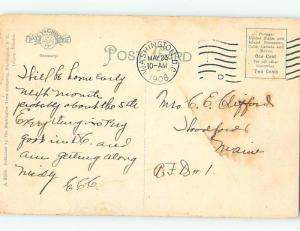 POST CARD
WASHINGTON, D.C.
MAY 23
10-AM
1908
Postage
United States and
Island Possessions
Cuba, Canada and
Mexico
One Cent
For all other
Countries
Two Cents
Will be home early
next month
probably about the 5th
Everything is very
good in D.C. and
am getting along
nicely
C.E.C.
Mrs C. E. Clifford
Woodfords
Maine
R.F.D. #1.